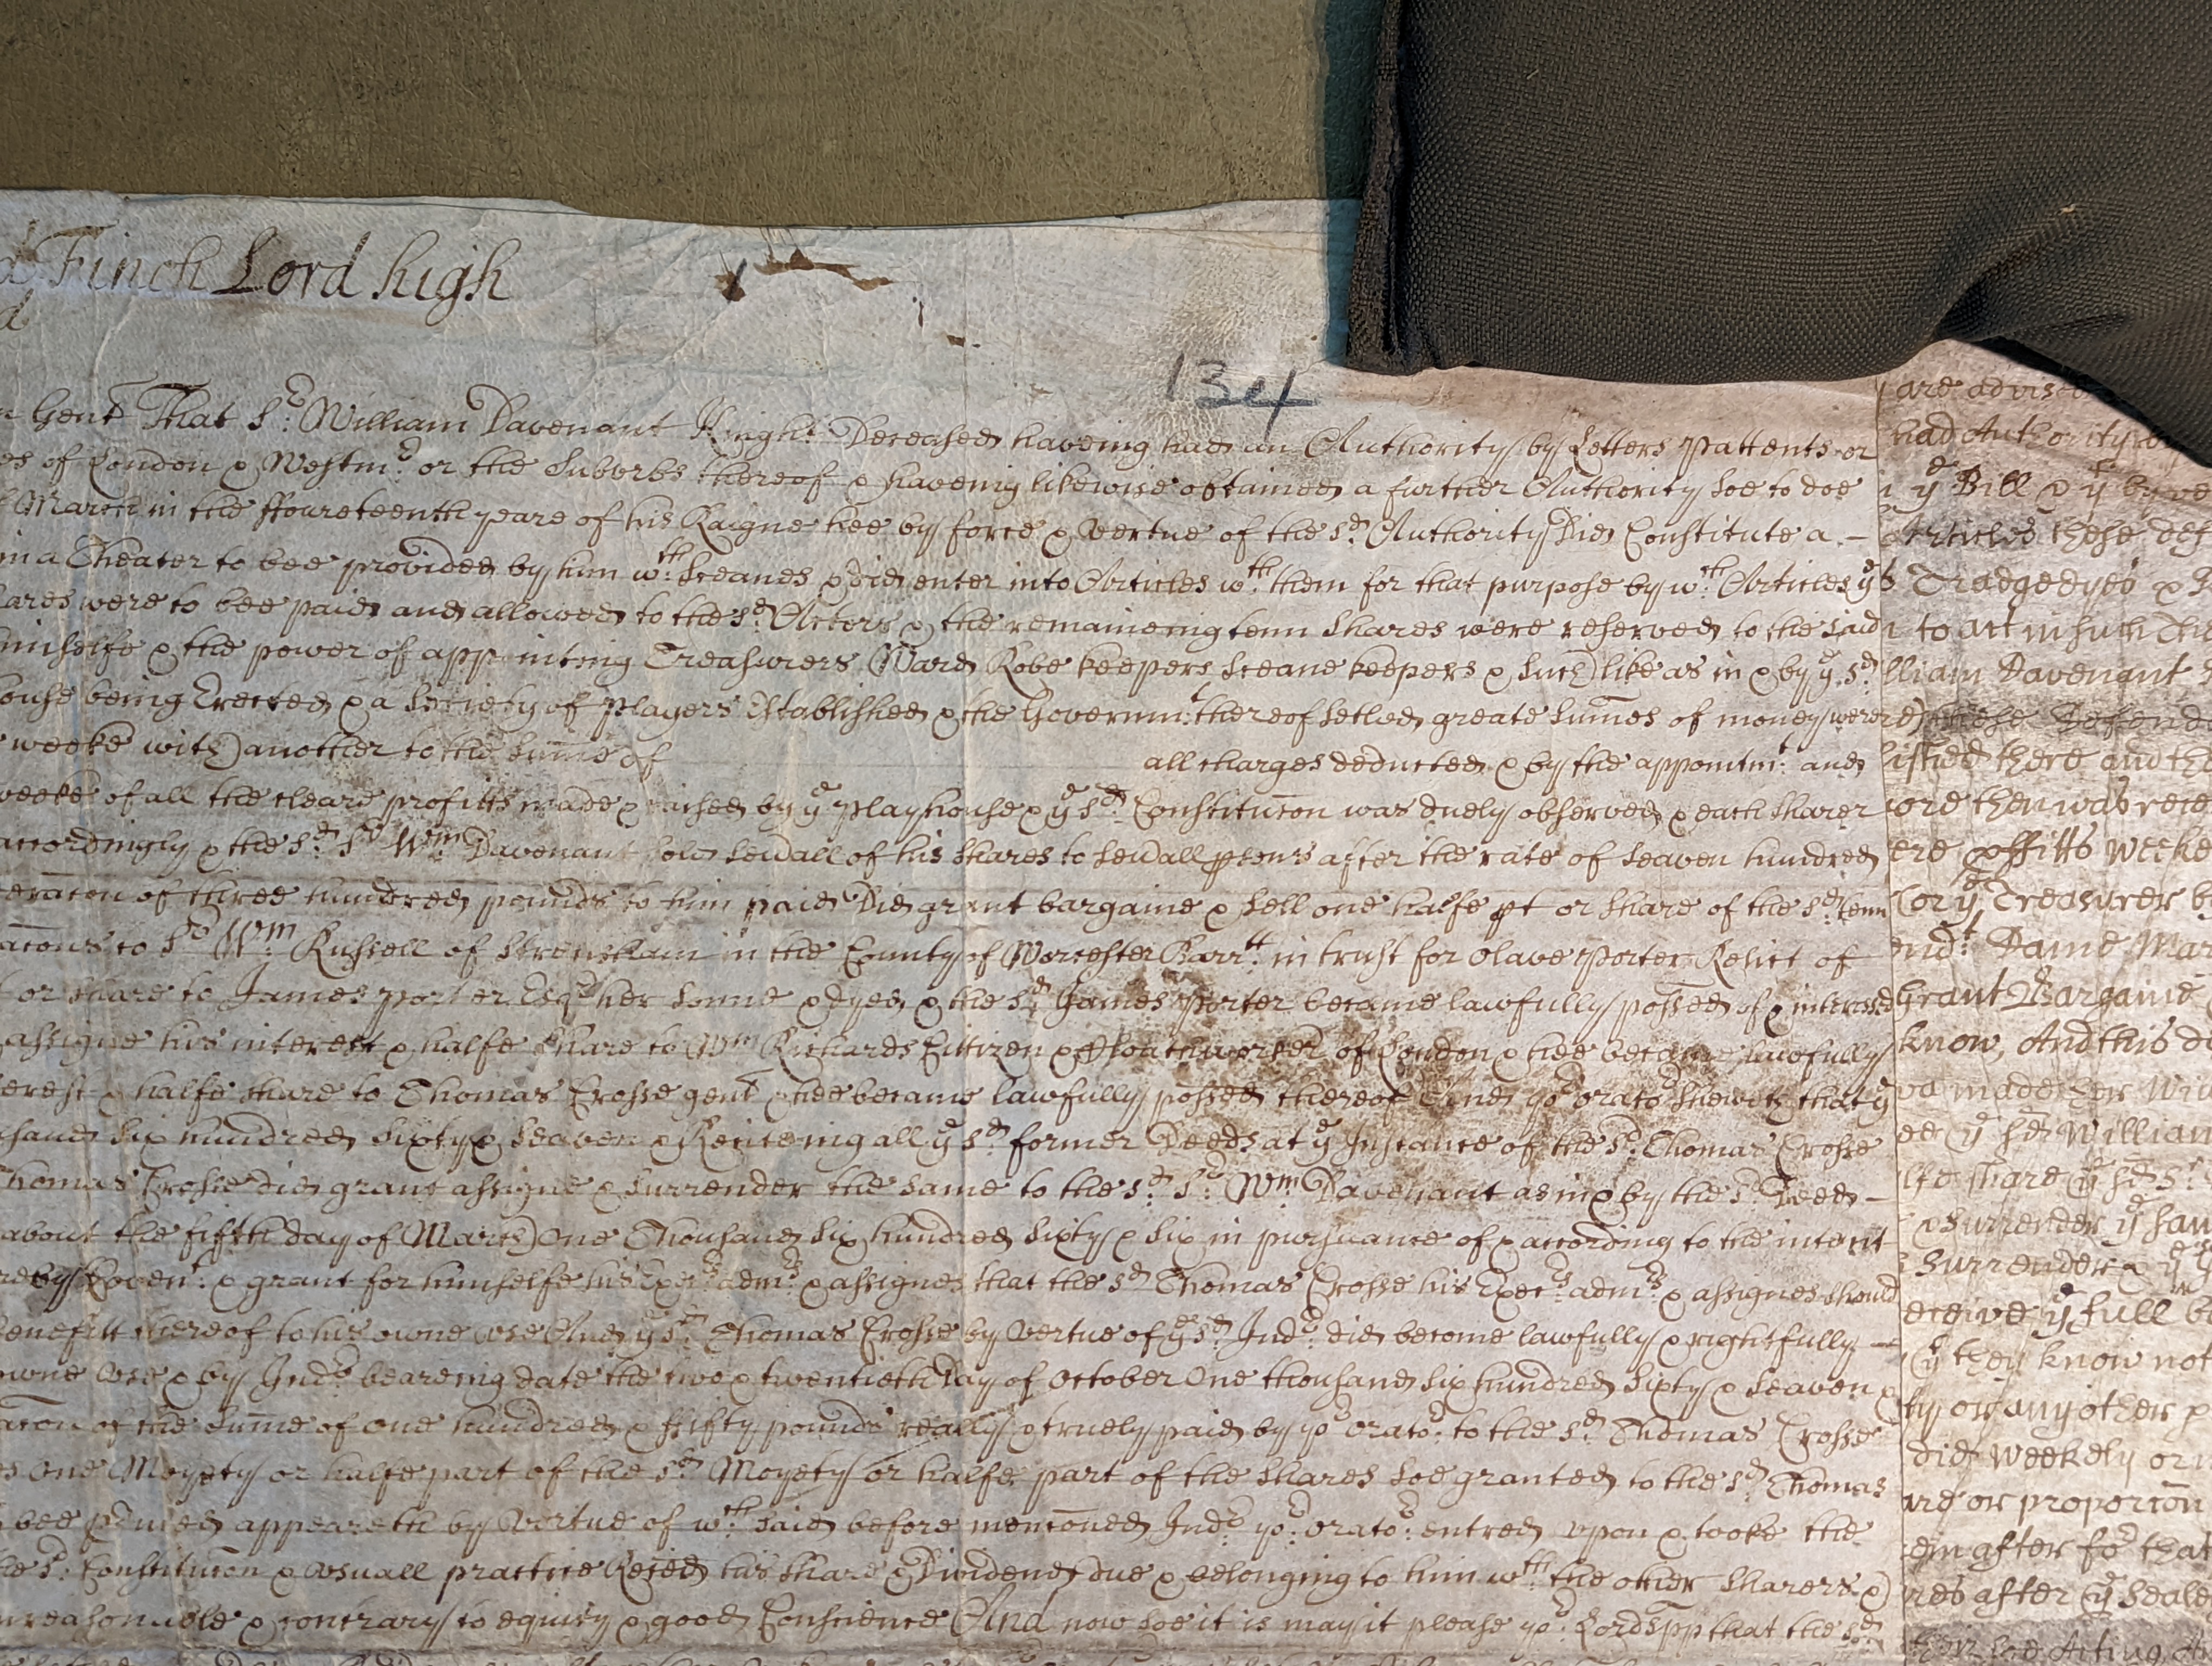 d Finch Lord high
d
134
Gent That Sr: William Davenant Knight Deceased haveing had an Authority by Letters Pattents or
es of London & Westmr: or the Suburbs thereof & haveing likewise obtained a further Authority soe to doe
March in the ffoureteenth yeare of his Raigne hee by force & vertue of the sd: Authority Did Constitute a –
in a Theater to bee provided by him wth: Sceanes & did enter into Articles wth: them for that purpose by wth: Articles ye
ares were to bee paid and allowed to the sd: Actors & the remaineing tenn Shares were reserved to the said
himselfe & the power of appointing Treasurers Ward Robe keepers Sceane keepers & such like as in & by ye sd:
ouse being Erected & a Society of Players Established & the Governmt: thereof setled greate summes of money were
weeke with another to the summe of all charges deducted & by the appointmt: and
weeke of all the cleare profitts made & raised by ye playhouse & ye sd: Constitucon was duely observed & each sharer
accordingly & the sd: Sr Wm: Davenant sold sevall of his shares to sevall psons after the rate of seaven hundred
eracon of three hundred pounds to him paid Did grant bargaine & sell one halfe pt or share of the sd: tenn
acons to Sr Wm: Russell of Strensham in the County of Worcester Barrtt: in trust for Olave Porter Relict of
or share to James Porter Esqr her sonne & dyed & the sd: James Porter became lawfully possed of & interessed
assigne his interest & halfe share to Wm Richards Cittizen & Clothworker of London & hee became lawfully
erest & halfe share to Thomas Crosse gent & hee became lawfully possed thereof And yor orator sheweth that ye
sand six hundred sixty & seaven & Reciteing all ye sd: former Deeds at ye Instance of the sd: Thomas Crosse
Thomas Crosse did grant assigne & surrender the same to the sd: Sr: Wm: Davenant as in & by the sd: Deed –
about the fifth day of March One Thousand six hundred sixty & six in pursuance of & according to the intent
reby Covent: & grant for himselfe his Exers: admrs: & assignes that the sd Thomas Crosse his Execrs: admrs: & assignes should
benefitt thereof to his owne use And ye sd: Thomas Crosse by vertue of ye sd: Indre: did become lawfully & rightfully –
owne use & by Indre: beareing date the two & twentieth day of October One thousand six hundred sixty & seaven &
acon of the summe of one hundred & ffifty pounds really & truely paid by yor orator: to the sd: Thomas Crosse
One Moyety or halfe part of the sd: Moyety or halfe part of the shares soe granted to the sd: Thomas
bee pduced appeareth by vertue of wth: said before menconed Indre: yor: orator: entred upon & tooke the
he sd: Constitucon & usuall practice Reced his share & Dividend due & belonging to him wth: the other sharers &
reasonable & contrary to equity & good Conscience And now soe it is may it please yor: Lordspp that the sd:
are advis
had Authority
ye Bill & yt by
Articles these def
Tradgedyes &
to act in such
lliam Davenant
these Defend
lished there and the
ore then was rece
ere pffitts weeke
or ye Treasurer
endt: Dame Mar
Grant Bargaine
know, And this de
made her Will
ye sd: William
lfe share ye sd Sr:
& surrender ye
Surrender & yt
eceive ye full be
yt they know not
ty or any other p
did weekely or
are or proporcon
em after for that
res after ye Seale
their soe Acting